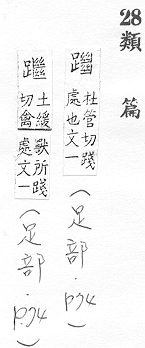 28類篇
躖杜管切踐處也文一(足部.p74)
躖土緩切禽獸所踐處文一(足部.p.74)